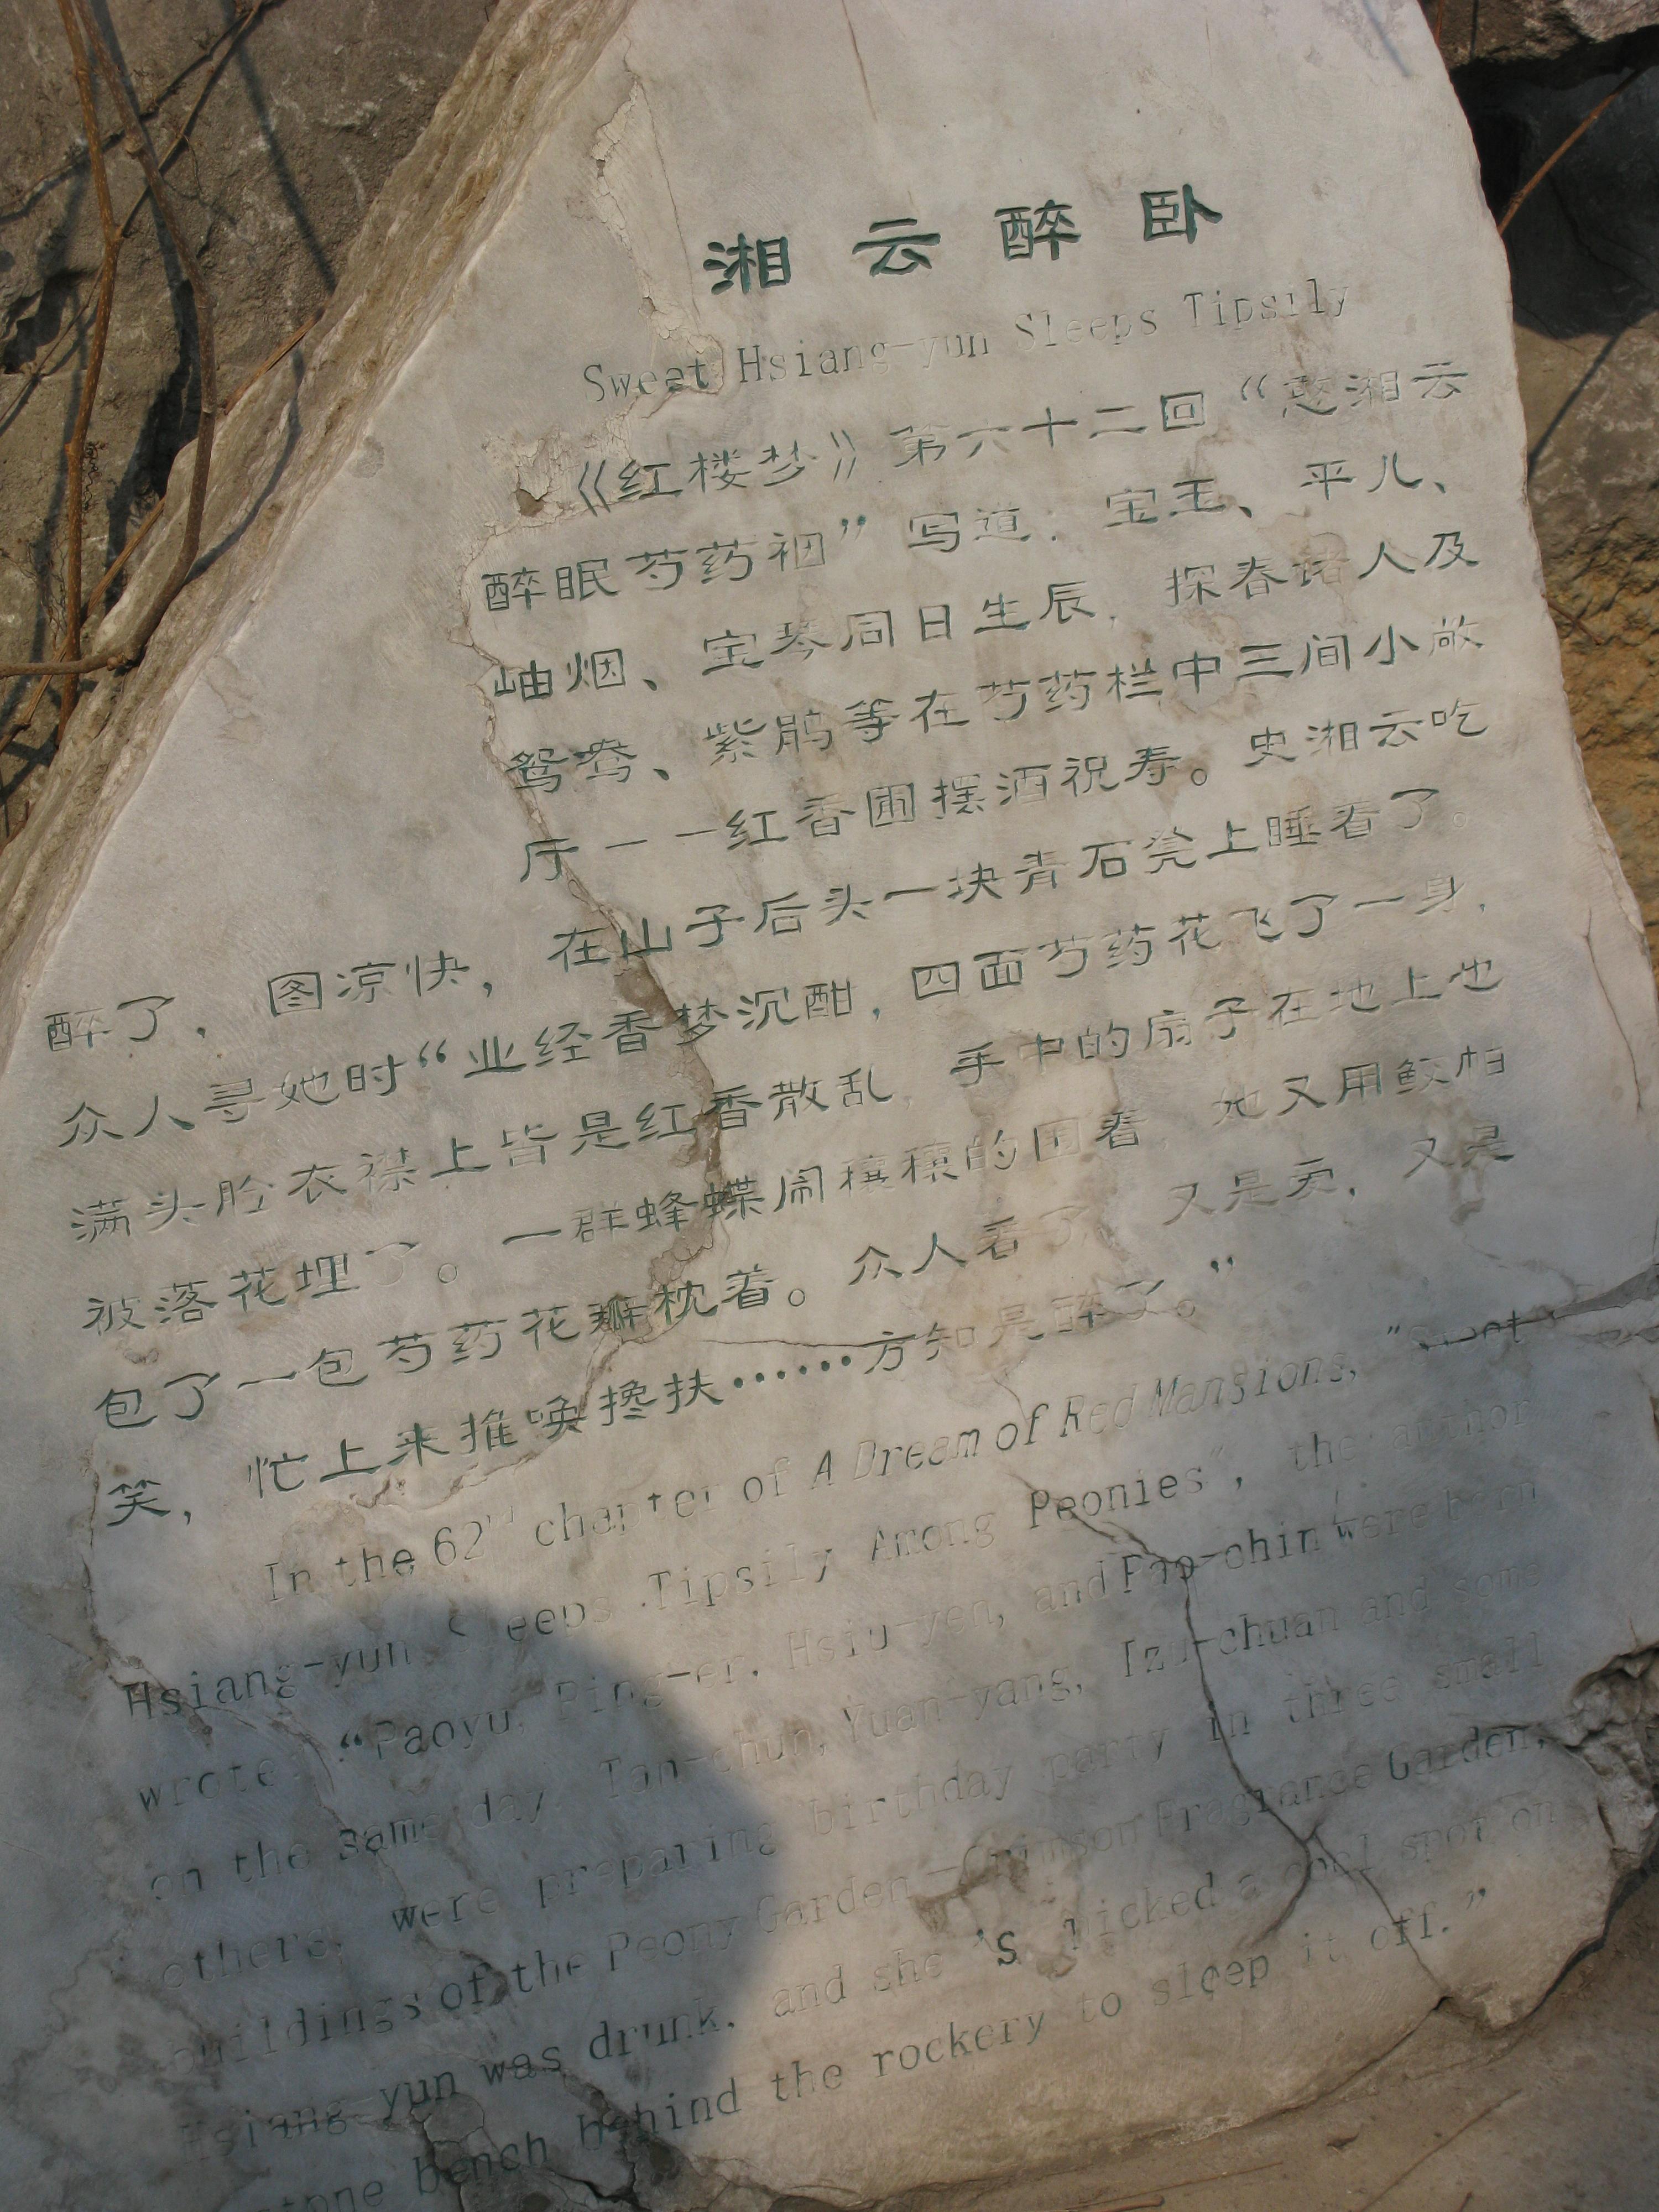 湘云醉卧
Sweet Hsiang-yun Sleeps Tipsily
《红楼梦》第六十二回“憨湘云
醉眠芍药裀”写道：宝玉、平儿、
岫烟、宝琴同日生辰，探春诸人及
鸳鸯、紫鹃等在芍药栏中三间小敞
厅——红香圃摆酒祝寿。史湘云吃
醉了，图凉快，在山子后头一块青石凳上睡着了。
众人寻她时“业经香梦沉酣，四面芍药花飞了一身，
满头脸衣襟上皆是红香散乱，手中的扇子在地上也
被落花埋了。一群蜂蝶闹穰穰的围着，她又用鲛帕
包了一包芍药花瓣枕着。众人看了，又是爱，又是
笑，忙上来推唤搀扶……方知是醉了。”
In the 62nd chapter of A Dream of Red Mansions, "Sweet
Hsiang-yun Sleeps Tipsily Among Peonies", the author
wrote: "Paoyu, Ping-er, Hsiu-yen, and Pao-chin were born
on the same day. Tan-chun, Yuan-yang, Tzu-chuan and some
others, were preparing birthday party in three small
buildings of the Peony Garden—Crimson Fragrance Garden.
Hsiang-yun was drunk, and she 's picked a cool spot on
stone bench behind the rockery to sleep it off."